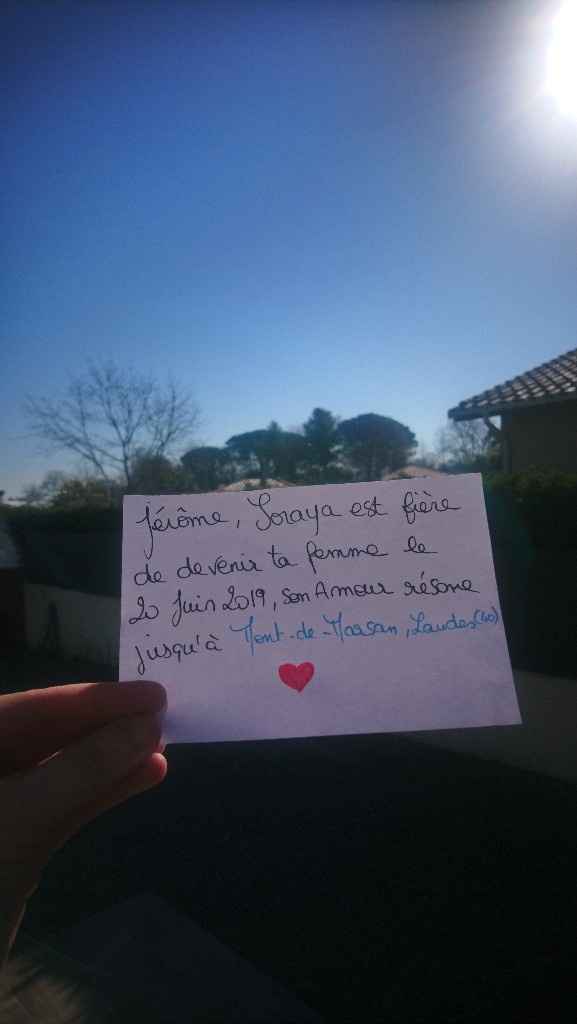 Jérôme, Soraya est fière
de devenir ta femme le
20 Juin 2019, son Amour résonne
jusqu'à Mont-de-Marsan, Landes (40)